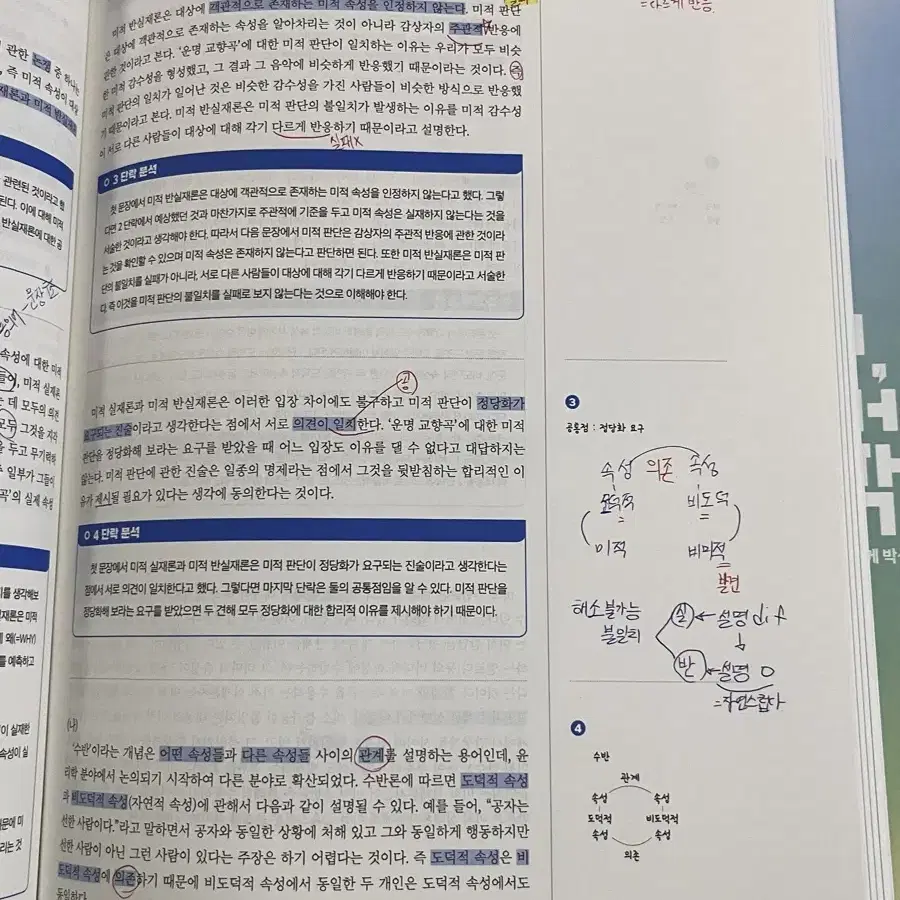 미적 반실재론은 대상에 객관적으로 존재하는 미적 속성을 인정하지 않는다. 미적 판단
은 대상에 객관적으로 존재하는 속성을 알아차리는 것이 아니라 감상자의 주관적 반응에
관한 것이라고 본다. ‘운명 교향곡’에 대한 미적 판단이 일치하는 이유는 우리가 모두 비슷
한 미적 감수성을 형성했고, 그 결과 그 음악에 비슷하게 반응했기 때문이라는 것이다. 즉
미적 판단의 일치가 일어난 것은 비슷한 감수성을 가진 사람들이 비슷한 방식으로 반응했
기 때문이라고 본다. 미적 반실재론은 미적 판단의 불일치가 발생하는 이유를 미적 감수성
이 서로 다른 사람들이 대상에 대해 각기 다르게 반응하기 때문이라고 설명한다.
실패x
=다르게 반응.
3 단락 분석
첫 문장에서 미적 반실재론은 대상에 객관적으로 존재하는 미적 속성을 인정하지 않는다고 했다. 그렇
다면 2 단락에서 예상했던 것과 마찬가지로 주관적에 기준을 두고 미적 속성은 실재하지 않는다는 것을
서술한 것이라고 생각해야 한다. 따라서 다음 문장에서 미적 판단은 감상자의 주관적 반응에 관한 것이라
는 것을 확인할 수 있으며 미적 속성은 존재하지 않는다고 판단하면 된다. 또한 미적 반실재론은 미적 판
단의 불일치를 실패가 아니라, 서로 다른 사람들이 대상에 대해 각기 다르게 반응하기 때문이라고 서술한
다. 즉 이것을 미적 판단의 불일치를 실패로 보지 않는다는 것으로 이해해야 한다.
공
미적 실재론과 미적 반실재론은 이러한 입장 차이에도 불구하고 미적 판단이 정당화가
요구되는 진술이라고 생각한다는 점에서 서로 의견이 일치한다. ‘운명 교향곡’에 대한 미적
판단을 정당화해 보라는 요구를 받았을 때 어느 입장도 이유를 댈 수 없다고 대답하지는
않는다. 미적 판단에 관한 진술은 일종의 명제라는 점에서 그것을 뒷받침하는 합리적인 이
유가 제시될 필요가 있다는 생각에 동의한다는 것이다.
4 단락 분석
첫 문장에서 미적 실재론과 미적 반실재론은 미적 판단이 정당화가 요구되는 진술이라고 생각한다는
점에서 서로 의견이 일치한다고 했다. 그렇다면 마지막 단락은 둘의 공통점임을 알 수 있다. 미적 판단을
정당화해 보라는 요구를 받았으면 두 견해 모두 정당화에 대한 합리적 이유를 제시해야 하기 때문이다.
(나)
‘수반’이라는 개념은 어떤 속성들과 다른 속성들 사이의 관계를 설명하는 용어인데, 윤
리학 분야에서 논의되기 시작하여 다른 분야로 확산되었다. 수반론에 따르면 도덕적 속성
과 비도덕적 속성(자연적 속성)에 관해서 다음과 같이 설명될 수 있다. 예를 들어, “공자는
선한 사람이다.”라고 말하면서 공자와 동일한 상황에 처해 있고 그와 동일하게 행동하지만
선한 사람이 아닌 그런 사람이 있다는 주장은 하기 어렵다는 것이다. 즉 도덕적 속성은 비
도덕적 속성에 의존하기 때문에 비도덕적 속성에서 동일한 두 개인은 도덕적 속성에서도
동일하다
3
공통점 : 정당화 요구
속성 의존 속성
도덕적 비도덕
미적 비미적
발견
해소불가능
불일치
실 설명 dif
반 설명 O
=자연스럽다
4
수반
관계
속성 속성
도덕적 비도덕적
속성 속성
의존